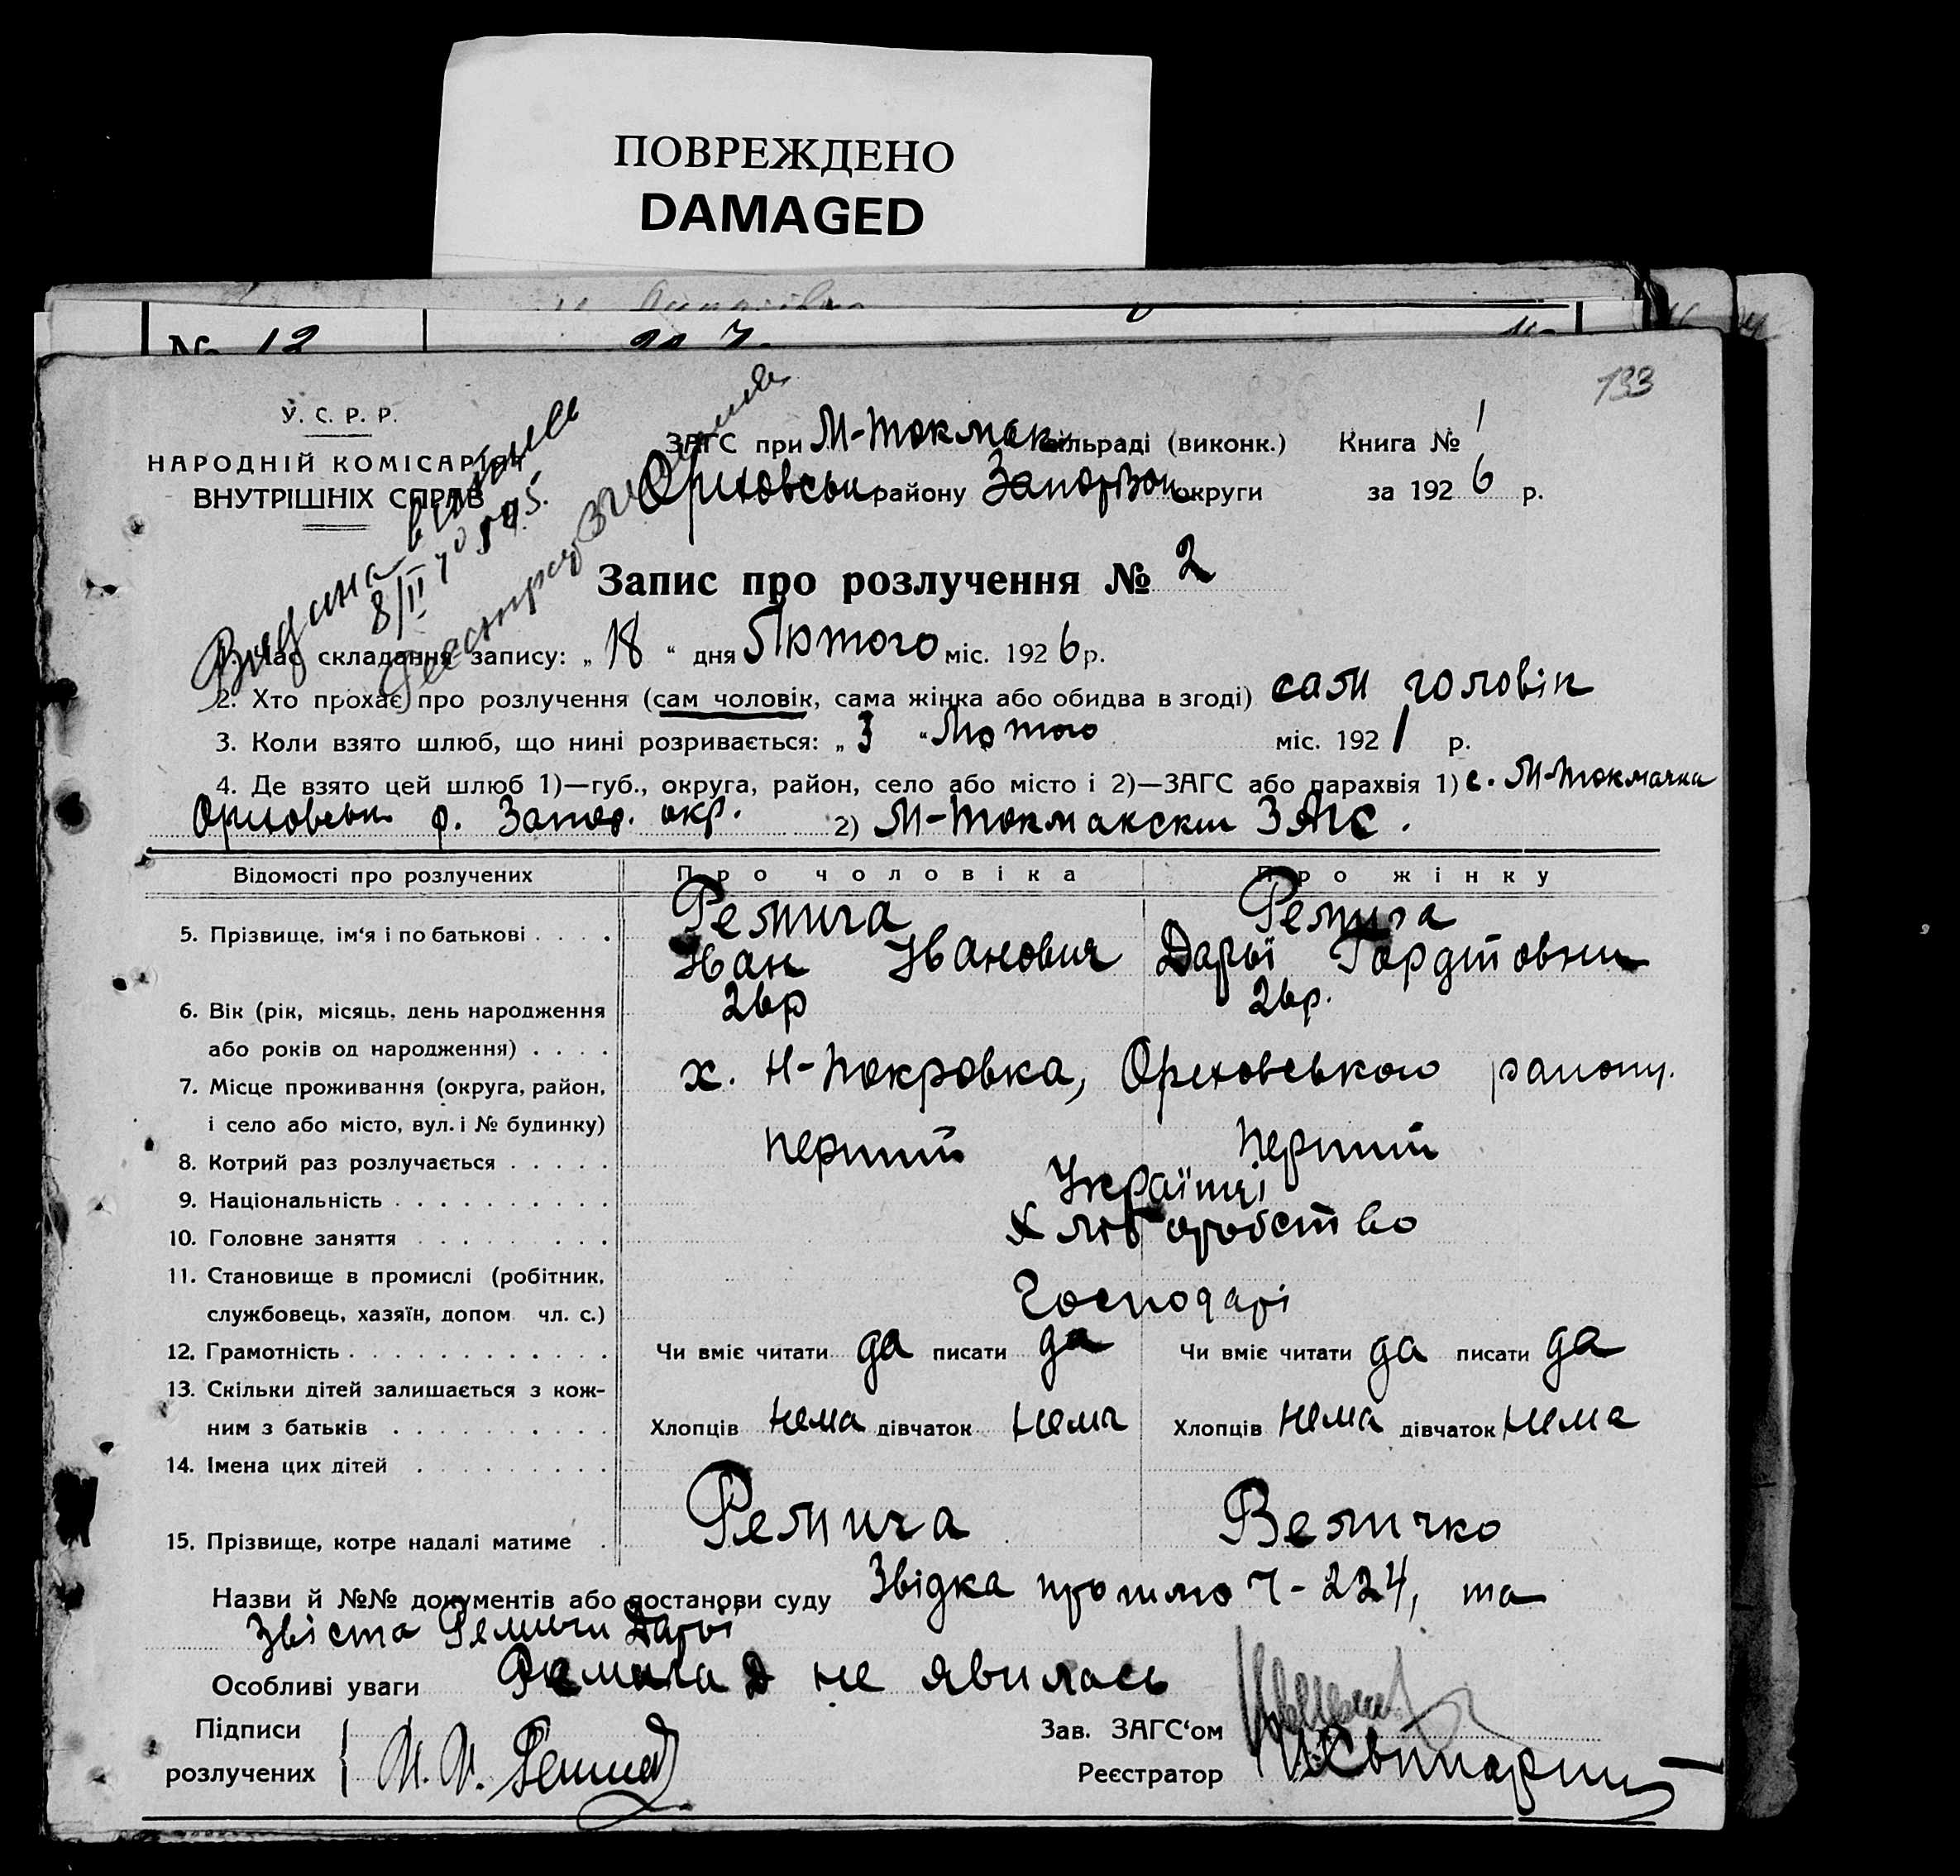 ПОВРЕЖДЕНО
DAMAGED
№ 12
133
У. С. Р. Р.
НАРОДНІЙ КОМІСАРІЯТ
ВНУТРІШНІХ СПРАВ
ЗАГС при М-Токмак. сільраді (виконк.) Книга № 1
Оріховськ району Запоріжск округи за 1926 р.
Видана виписка
8/II
Запис про розлучення № 2
1. Час складання запису: „18“ дня Лютого міс. 1926 р.
2. Хто прохає про розлучення (сам чоловік, сама жінка або обидва в згоді) сам чоловік
3. Коли взято шлюб, що нині розривається: „3“ Лютого міс. 1921 р.
4. Де взято цей шлюб 1)—губ., округа, район, село або місто і 2)—ЗАГС або парахвія 1) с. М-Токмачка
Оріховськ р. Запор. окр. 2) М-Токмакский ЗАГС.
Відомості про розлучених Про чоловіка Про жінку
5. Прізвище, ім‘я і по батькові Ремига Ремига
Іван Іванович Дарьї Гордіївни
6. Вік (рік, місяць, день народження 26р 26р.
або років од народження)
7. Місце проживання (округа, район, х. Н-Покровка, Оріховського району.
і село або місто, вул. і № будинку)
8. Котрий раз розлучається перший перший
9. Національність Українці
10. Головне заняття Хліборобство
11. Становище в промислі (робітник, Господарі
службовець, хазяїн, допом чл. с.)
12. Грамотність Чи вміє читати да писати да Чи вміє читати да писати да
13. Скільки дітей залишається з кож-
ним з батьків Хлопців нема дівчаток нема Хлопців нема дівчаток нема
14. Імена цих дітей
15. Прізвище, котре надалі матиме Ремига Величко
Назви й №№ документів або постанови суду Звідка про шлюб Ч-224, та
звістка Ремиги Дарьї
Особливі уваги Ремига Д не явилась
Підписи
розлучених И. И. Ремига
Зав. ЗАГС‘ом
Реєстратор